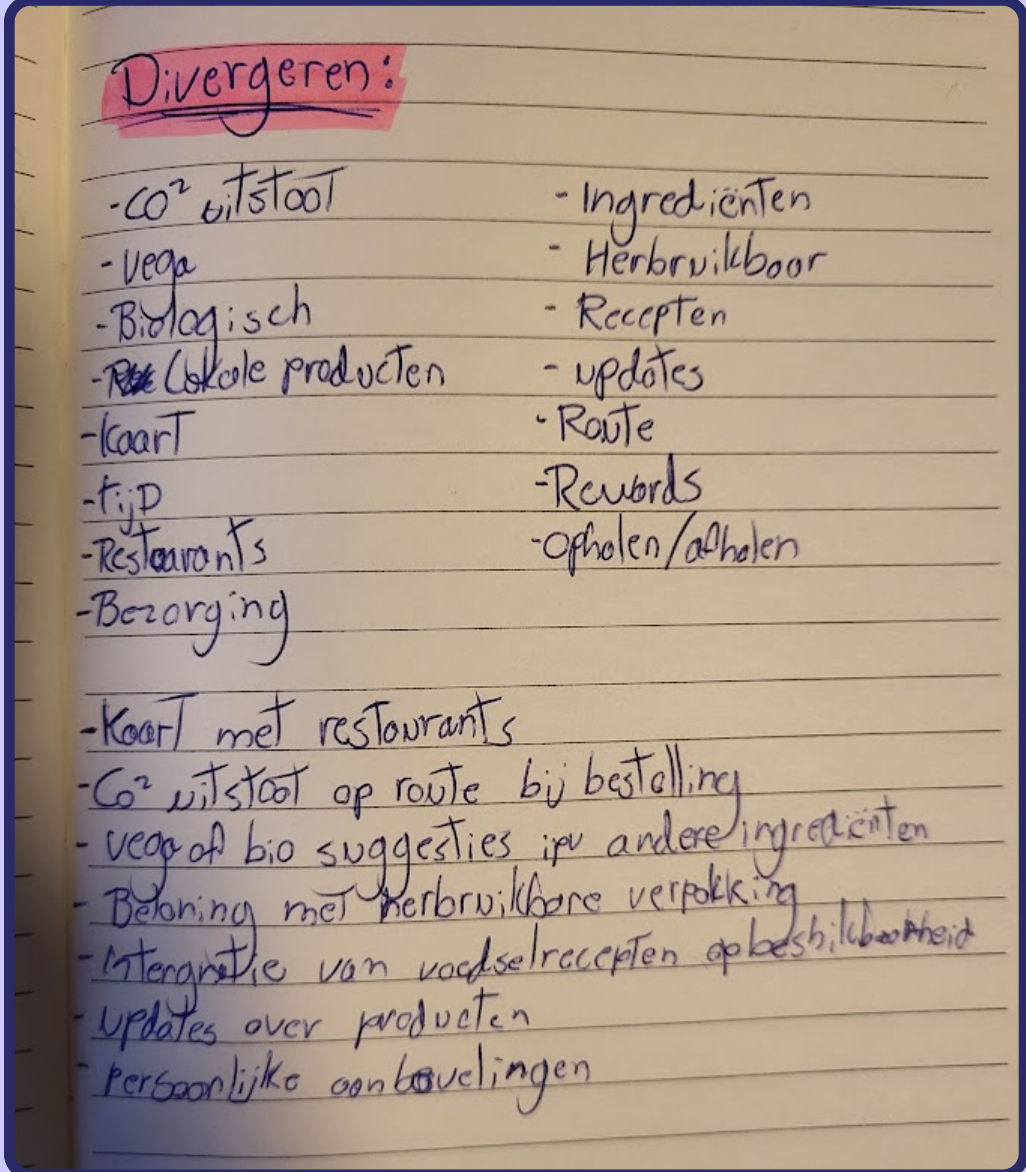 Divergeren:
- CO² uitstoot
- Vega
- Biologisch
- Lokale producten
- Kaart
- tijD
- Restaurants
- Bezorging
- Ingrediënten
- Herbruikbaar
- Recepten
- updates
- Route
- Rewards
- Opholen/afholen
- Kaart met restaurants
- CO² uitstoot op route bij bestelling
- vega of bio suggesties ipv andere ingrediënten
- Beloning met herbruikbare verpakking
- Intergratie van voedselrecepten op beshikbaarheid
- updates over producten
- Persoonlijke aanbevelingen